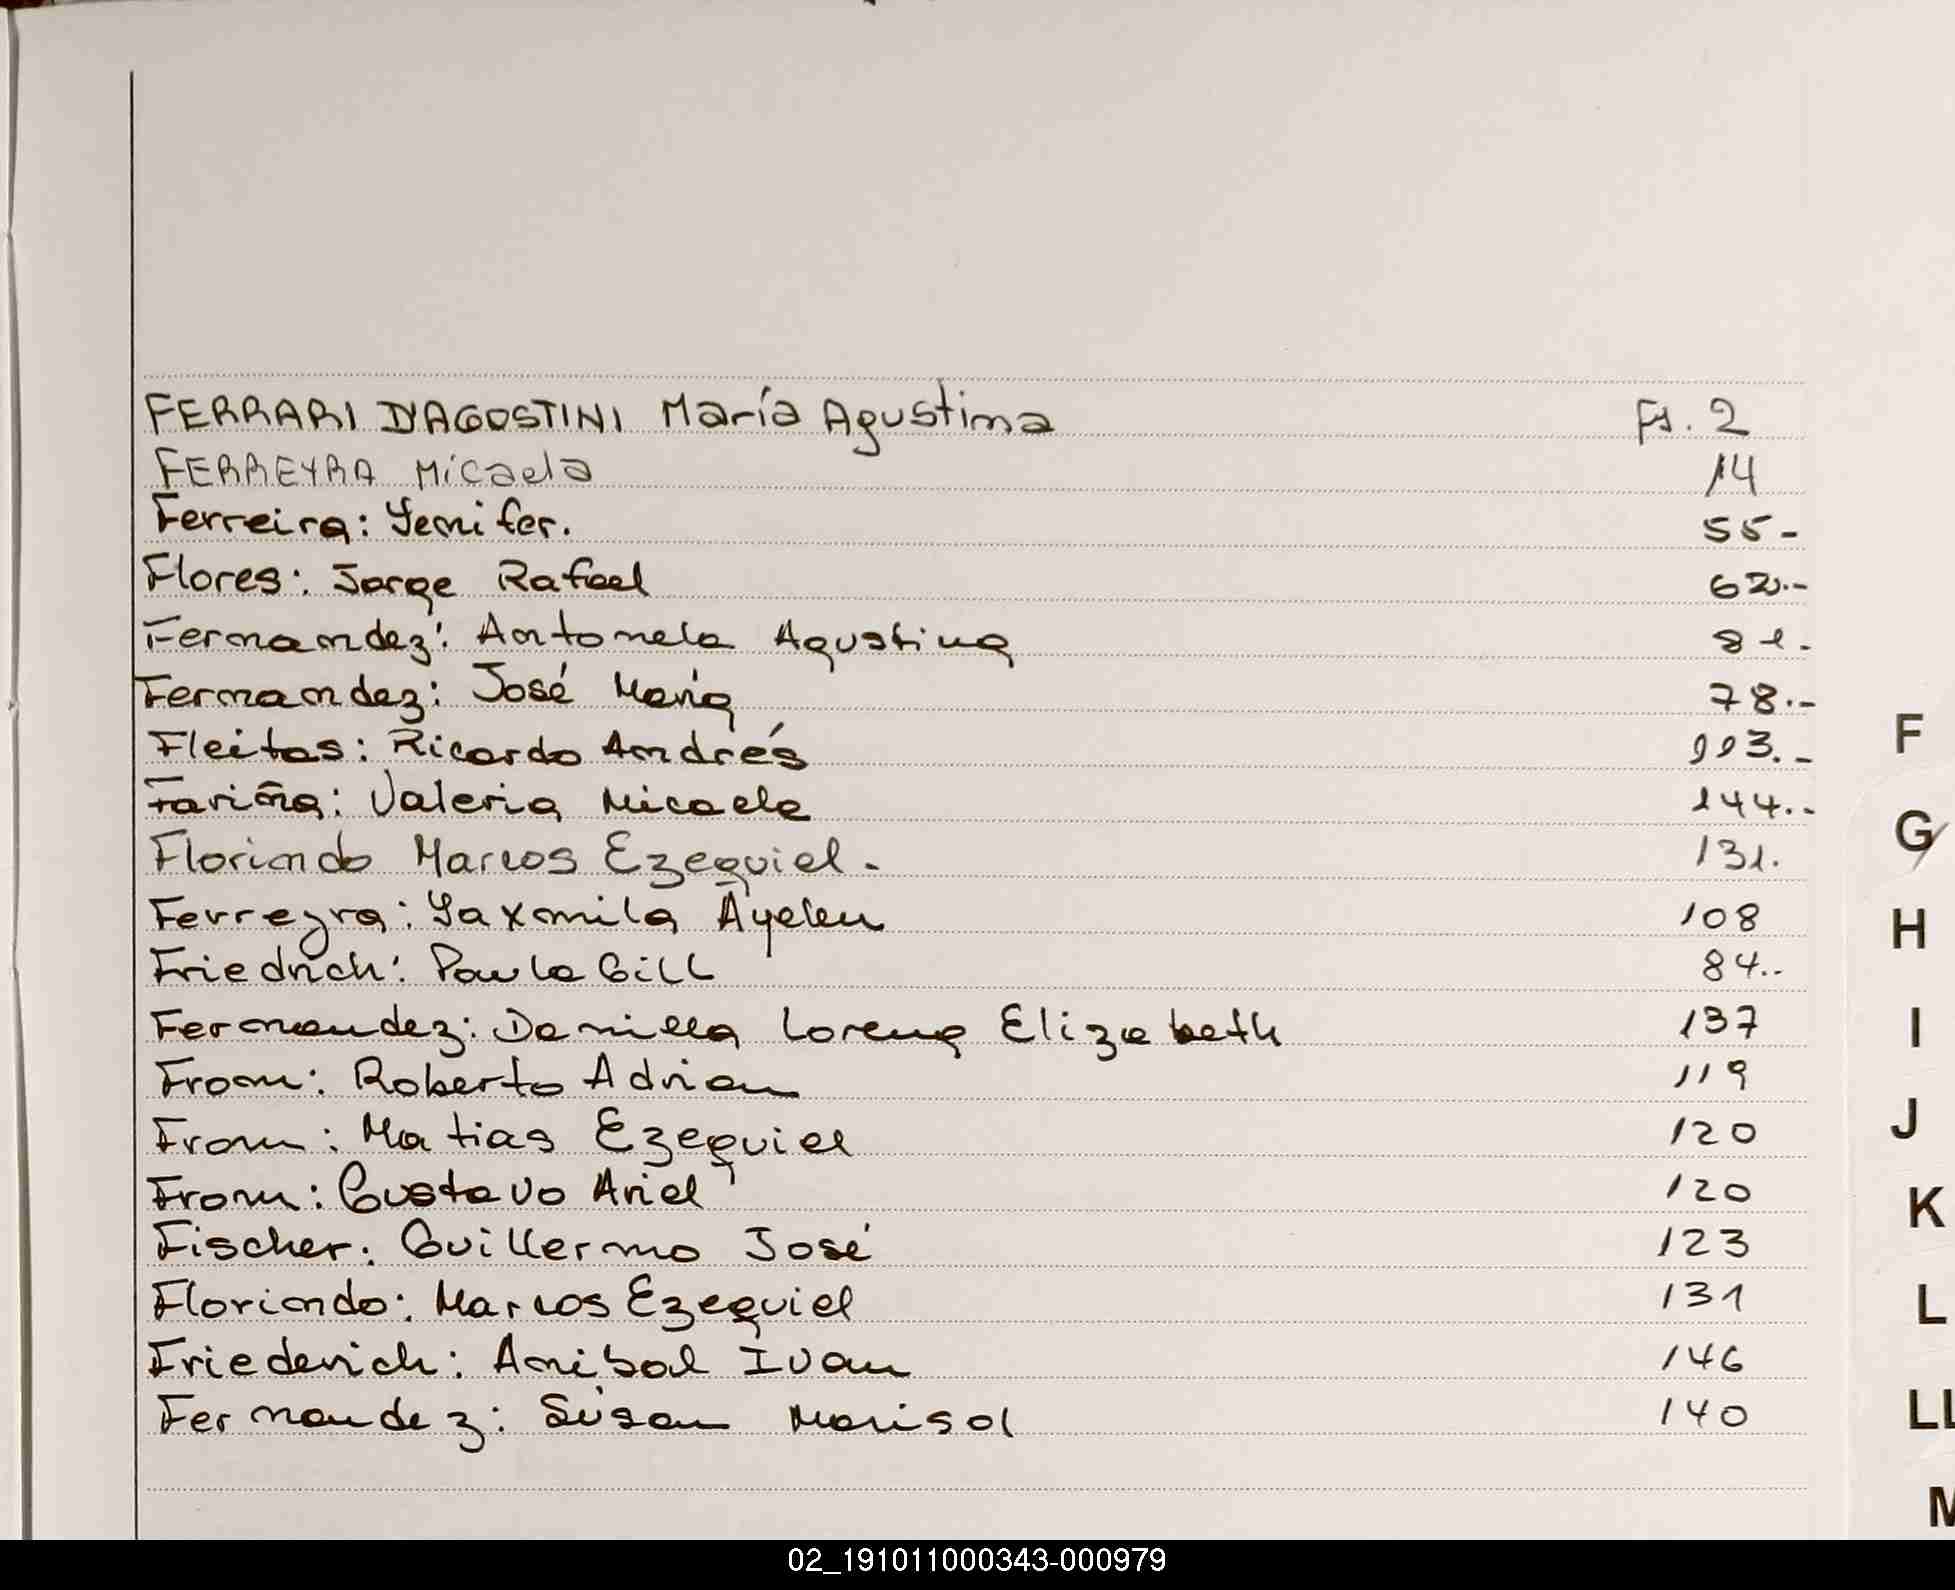 FERRARI D'AGOSTINI María Agustina Fs. 2
FERREYRA Micaela 14
Ferreira: Yenifer. 55-
Flores: Jorge Rafael 62.-
Fernandez: Antonela Agustina 81.
Fernandez: José María 78.-
Fleitas: Ricardo Andrés 113.-
Fariña: Valeria Micaela 144..
Florindo Marcos Ezequiel. 131.
Ferreyra: Yaxmila Ayelen 108
Friedrich: Paula Gill 84..
Fernandez: Daniela Lorena Elizabeth 137
From: Roberto Adrian 119
From: Matias Ezequiel 120
From: Gustavo Ariel 120
Fischer: Guillermo José 123
Florindo: Marcos Ezequiel 131
Friederich: Anibal Ivan 146
Fernandez: Susan Marisol 140
F
G
H
I
J
K
L
LL
M
02_191011000343-000979